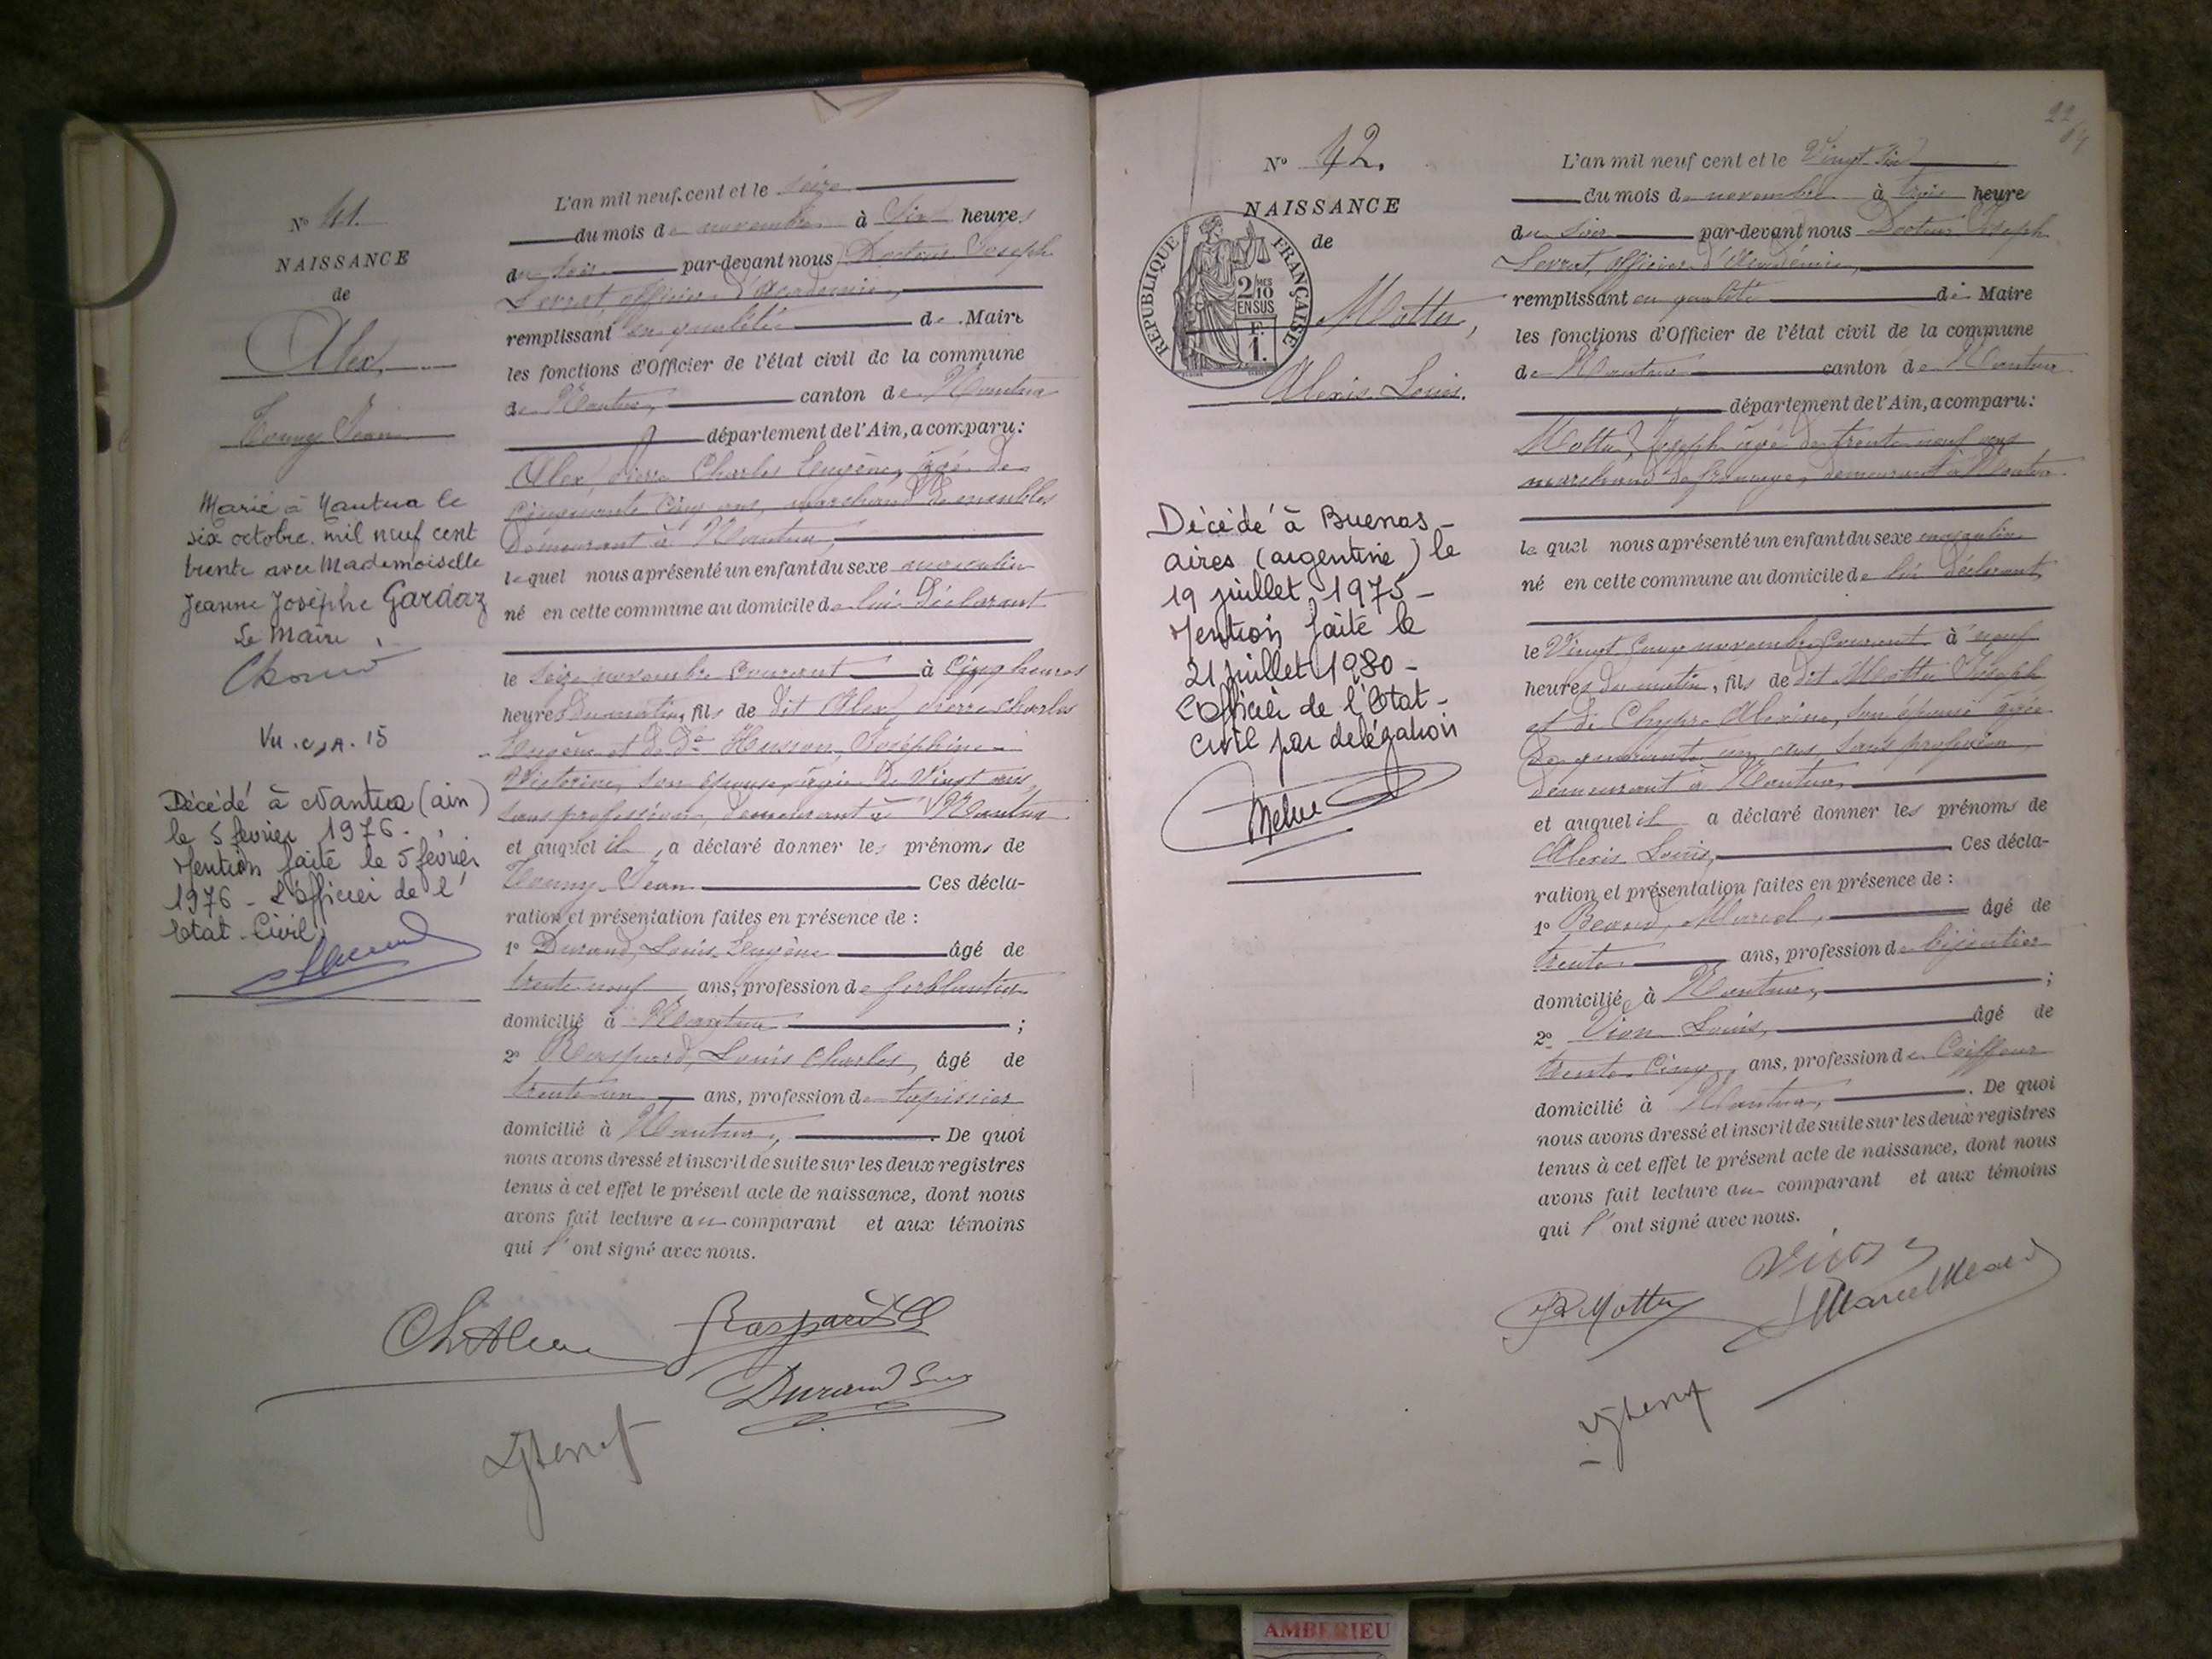 N° 41.
NAISSANCE
de
Alex,
Jean
Marié à Nantua le
six octobre mil neuf cent
trente avec Mademoiselle
Jeanne Josèphe Gardaz
Le Maire,
Vu
Décédé à Nantua (ain)
le 5 février 1976.
Mention faite le 5 février
1976 - L'Officier de l'
Etat-Civil
L'an mil neuf cent et le seize
du mois de novembre à six heures
du soir par-devant nous Docteur Joseph
officier d'Académie,
remplissant en qualité de Maire
les fonctions d'Officier de l'état civil de la commune
de Nantua, canton de Nantua
département de l'Ain, a comparu:
Alex, Pierre Charles Eugène, âgé de
cinquante cinq ans, marchand de meubles
demeurant à Nantua,
lequel nous a présenté un enfant du sexe masculin
né en cette commune au domicile de lui déclarant
le seize novembre courant à cinq heures
heures du matin, fils de dit Alex, Pierre Charles
Eugène et de De Joséphine
Victorine, son épouse, âgée de vingt ans,
sans profession, demeurant à Nantua
et auquel il a déclaré donner les prénoms de
Jean Ces décla-
ration et présentation faites en présence de :
1° Durand, Louis Eugène âgé de
trente neuf ans, profession de ferblantier
domicilié à Nantua ;
2° Raspard, Louis Charles, âgé de
trente un ans, profession de tapissier
domicilié à Nantua, . De quoi
nous avons dressé et inscrit de suite sur les deux registres
tenus à cet effet le présent acte de naissance, dont nous
avons fait lecture au comparant et aux témoins
qui l'ont signé avec nous.
Ch Alex
Durand
22
N° 42.
NAISSANCE
de
RÉPUBLIQUE FRANÇAISE
2 MES
10
EN SUS
F.
1.
Mottu,
Alexis Louis.
Décédé à Buenos-
aires (argentine) le
19 juillet 1975-
Mention faite le
21 juillet 1980-
L'Officier de l'Etat-
civil par délégation
L'an mil neuf cent et le vingt six
du mois de novembre à trois heure
du soir par-devant nous Docteur Joseph
officier d'Académie,
remplissant en qualité de Maire
les fonctions d'Officier de l'état civil de la commune
de Nantua canton de Nantua
département de l'Ain, a comparu:
Mottu, Joseph âgé de trente neuf ans
marchand de fromage, demeurant à Nantua
lequel nous a présenté un enfant du sexe masculin
né en cette commune au domicile de lui déclarant
le vingt cinq novembre courant à neuf
heures du matin, fils de dit Mottu Joseph
et de Alexine, son épouse âgée
de quarante un ans, sans profession
demeurant à Nantua,
et auquel il a déclaré donner les prénoms de
Alexis Louis, Ces décla-
ration et présentation faites en présence de :
1° Marcel, âgé de
trente ans, profession de bijoutier
domicilié à Nantua, ;
2° Vion Louis, âgé de
trente cinq, ans, profession de Coiffeur
domicilié à Nantua, . De quoi
nous avons dressé et inscrit de suite sur les deux registres
tenus à cet effet le présent acte de naissance, dont nous
avons fait lecture au comparant et aux témoins
qui l'ont signé avec nous.
Vion
Mottu
Marcel
AMBERIEU